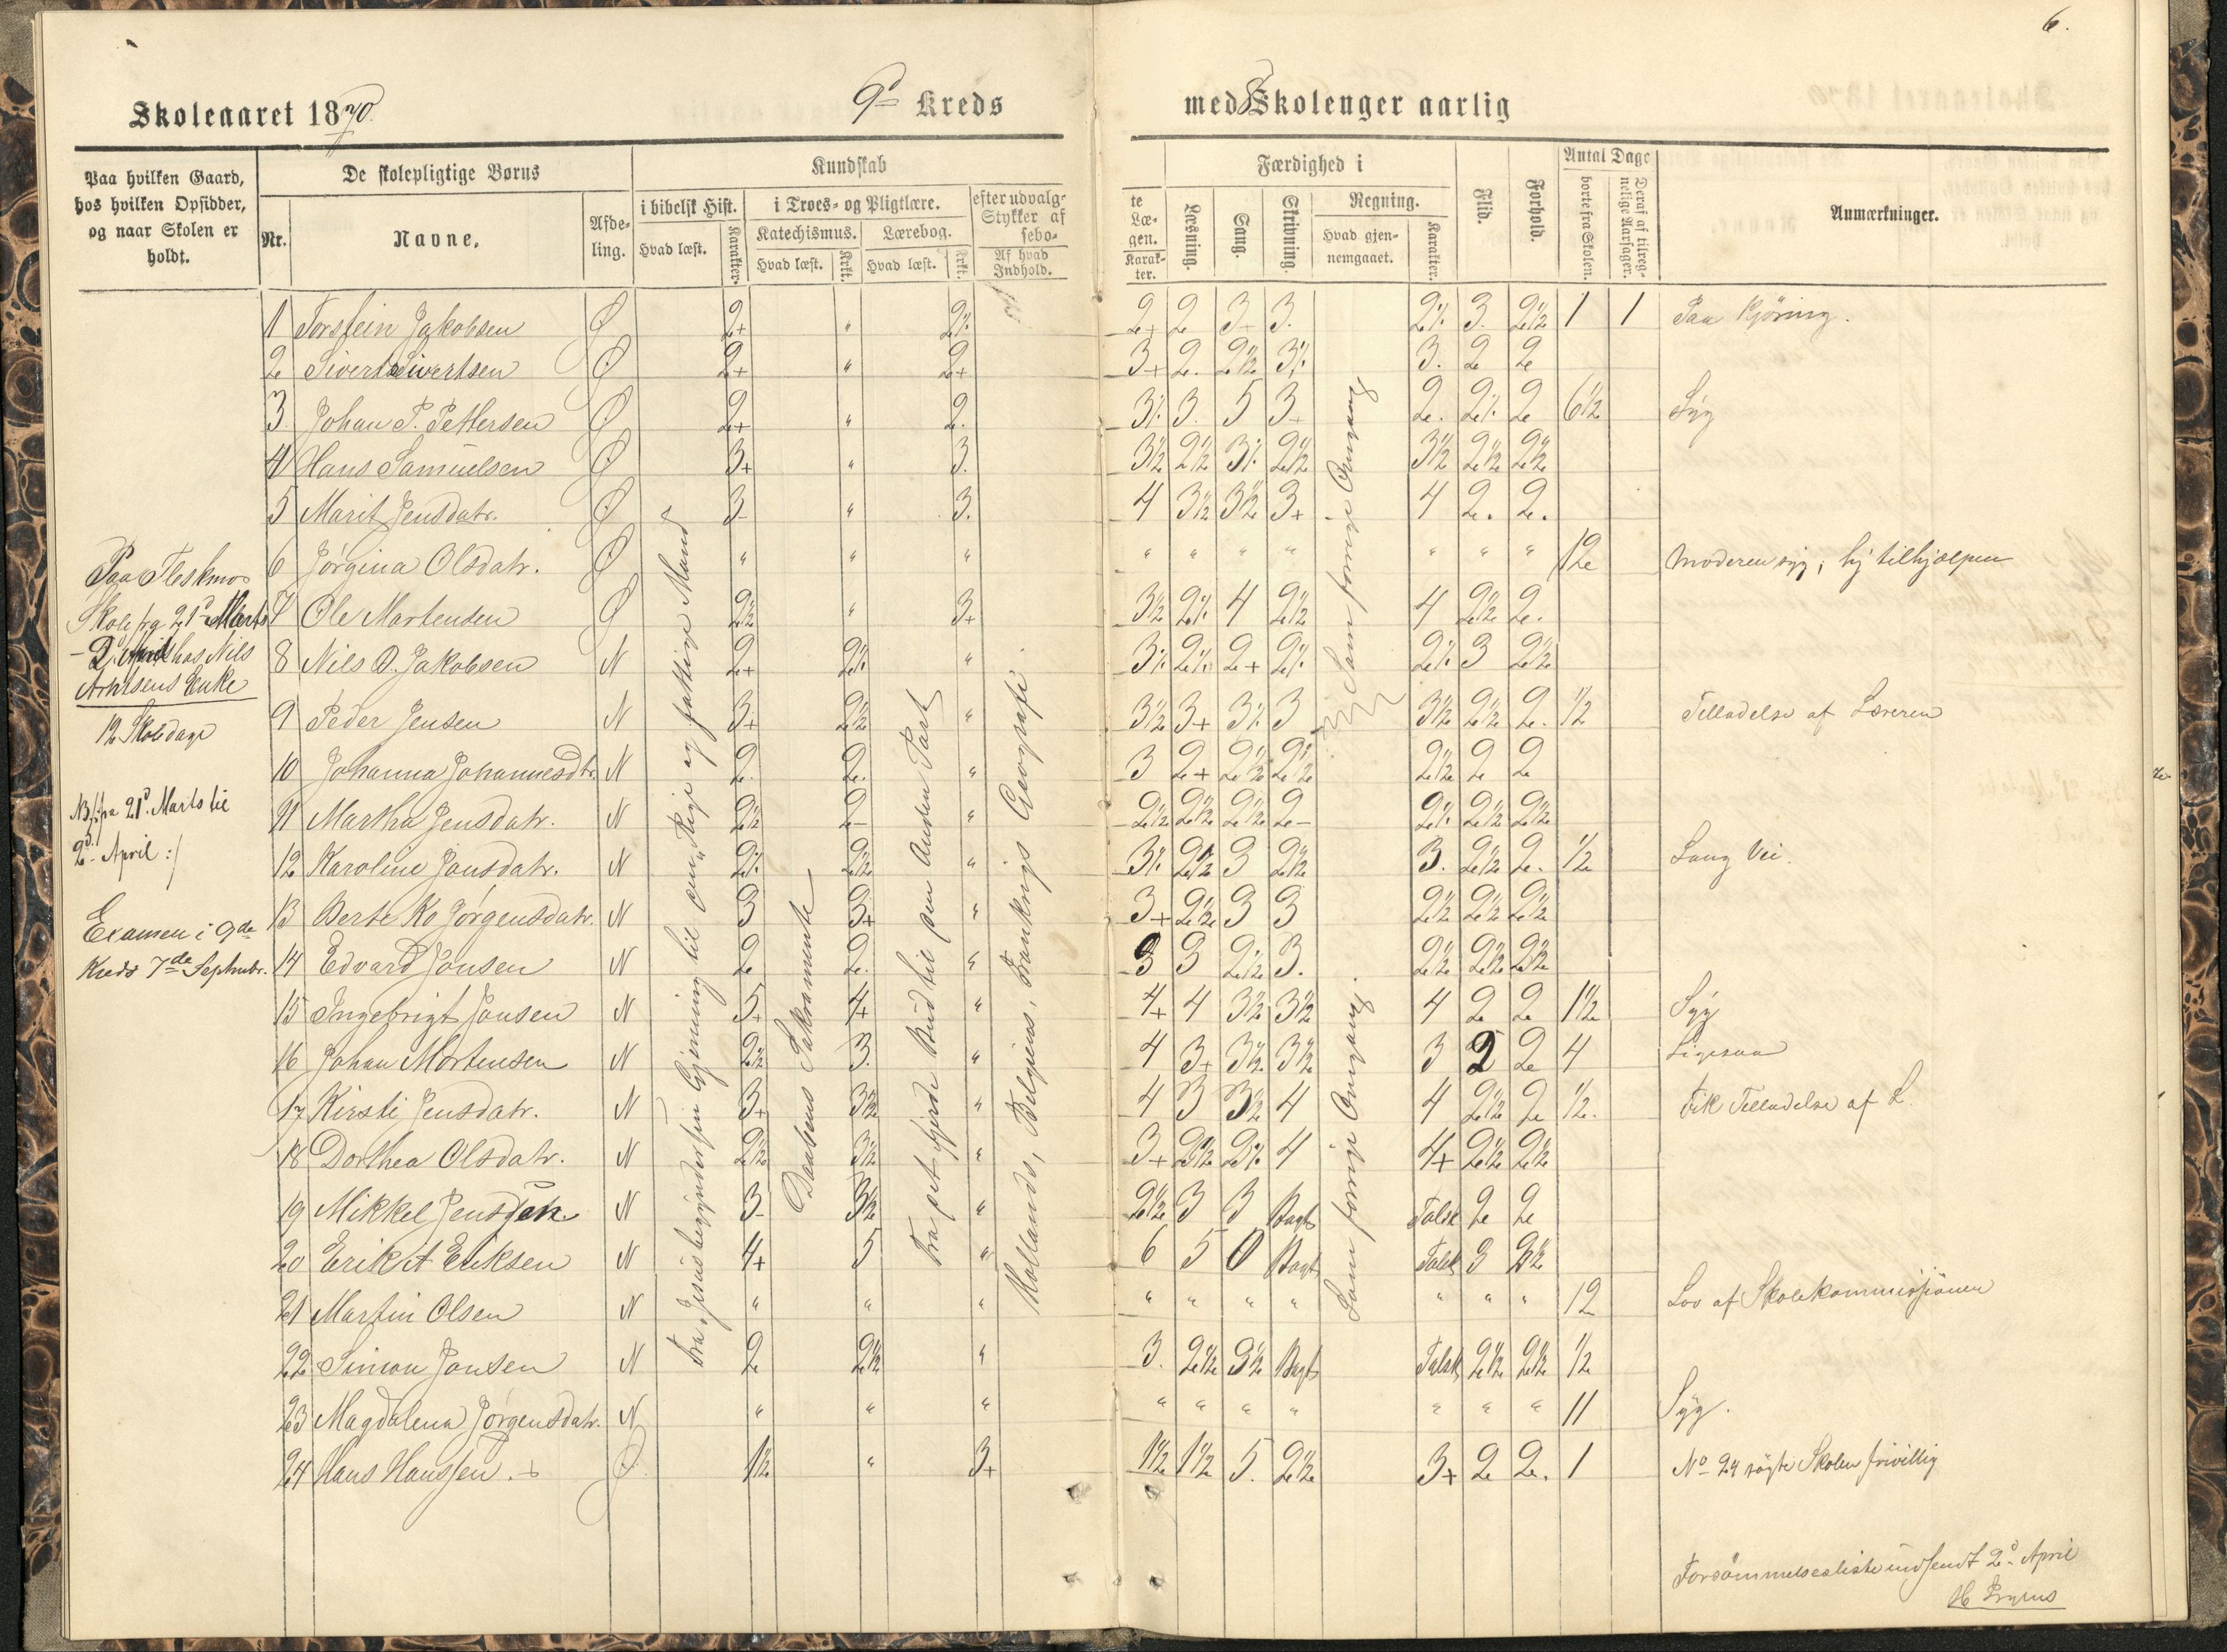 6.
Skoleaaret 1870.
9d Kreds
med 8 Skolenger aarlig
Paa hvilken Gaard, hos hvilken Opsidder, og naar Skolen er holdt.
De skolepligtige Børns
Nr.
Navne.
Afde-ling.
Kundskab
i bibelsk Hist.
Hvad læst.
Karakter.
i Troes- og Pligtlære.
Katechismus.
Hvad læst.
Krkt.
Lærebog.
Hvad læst.
Krkt.
efter udvalg-
Stykker af
sebo-
Af hvad Indhold.
te
Læ-
gen.
Karak-
ter.
Færdighed i
Læsning.
Sang.
Skrivning.
Regning.
Hvad gjen-
nemgaaet.
Karakter.
Flid.
Forhold.
Antal Dage
borte fra Skolen.
Deraf af tilreg-
nelige Aarsager.
Anmærkninger.
1 Torstein Jakobsen Ø 2+ " 2% 2+ 2 3+ 3. 2% 3. 2½ 1 1 Paa Kjöring.
2 Sivert Sivertsen Ø 2+ " 2+ 3+ 2. 2½ 3% 3. 2 2
3. Johan P. Pettersen Ø 2+ " 2. 3% 3. 5 3+ 2. 2% 2 6½ Syg
4 Hans Samuelsen Ø 3+ " 3. 3½ 2½ 3% 2½ 3½ 2½ 2½
5 Marit Jensdatr. Ø 3- " 3. 4 3½ 3½ 3+ 4 2. 2.
6 Jørgina Olsdatr. Ø " " " " " " " " " " 12 Moderen syg, hj tilhjælpen
7 Ole Martensen Ø 2½ " 3+ 3½ 2% 4 2½ 4 2½ 2.
8 Nils O. Jakobsen N 2+ 2% " 3% 2% 2+ 2% 2% 3 2½
9 Peder Jensen N 3+ 2½ " 3½ 3+ 3% 3 3½ 2½ 2. ½ Tilladelse af Læreren
10 Johanna Johannesdtr. N 2. 2. " 3 2+ 2½ 2½ 2½ 2 2
11 Martha Jensdatr. N 2½ 2- " 2½ 2½ 2½ 2- 2% 2½ 2½
12 Karoline Jonsdatr. N 2% 2½ " 3% 2½ 3 2½ 3. 2½ 2. ½ Lang Vei.
13 Berte Ka Jörgensdatr. N 3 3+ " 3+ 2½ 3 3 2½ 2½ 2½
14 Edvard Jonsen N 2 2. " 3 3 2½ 3. 2½ 2½ 2½
15 Ingebrigt Jonsen N 5+ 4+ " 4+ 4 3½ 3½ 4 2 2 1½ Syg
16 Johan Mortensen N 2½ 3. " 4 3+ 3½ 3½ 3 2 2 4 Ligesaa
17 Kirsti Jensdatr. N 3+ 3½ " 4 3 3½ 4 4 2½ 2 ½. Fik Tilladelse af L.
18 Dorthea Olsdatr. N 2½ 3½ " 3+ 2½ 2% 4 4+ 2½ 2½
19 Mikkel Jensen N 3- 3½ " 2½ 3 3 Bogst Talsk 2 2
20 Erik A Eriksen N 4+ 5 " 6 5 0 Bogst Talsk 3 2½
21 Martin Olsen N " " " " " " " " " " 12 Lov af Skolekommissionen
22 Simon Jonsen N 2 2½ " 3. 2½ 3½ Bogst Talsk 2½ 2½ ½
23 Magdalena Jørgensdatr. N " " " " " " " " " " 11 Syg.
24 Hans Hanssen. + Ø. 1½ " 3+ 1½ 1½ 5. 2½ 3+ 2 2. 1 No 24 søgte Skolen frivillig
Paa Fleskmo
Skole fra 21d Marts
- 2d April hos Nils
Arntsens Enke
12 Skoledage
NB/: fra 21d. Marts til
2d. April :/
Examen i 9de
Kreds 7de Septembr.
Fra „Jesus begynder sin Gjerning til om „Rige og fattige Mand
Daabens Sakramente
Fra det fjerde Bud til den Anden Part
Hollands, Belgiens, Frankrigs Geografi
Som forrige Omgang
Som forrige Omgang.
Forsömmelsesliste indsendt 2d. April